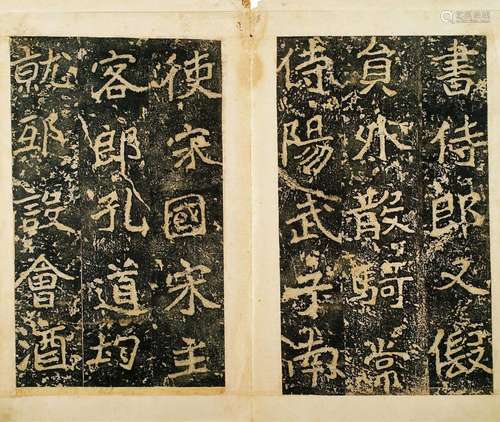 書侍郎又假
員外散騎常
侍陽武子南
使宋國宋主
客郎孔道均
就邸設會酒